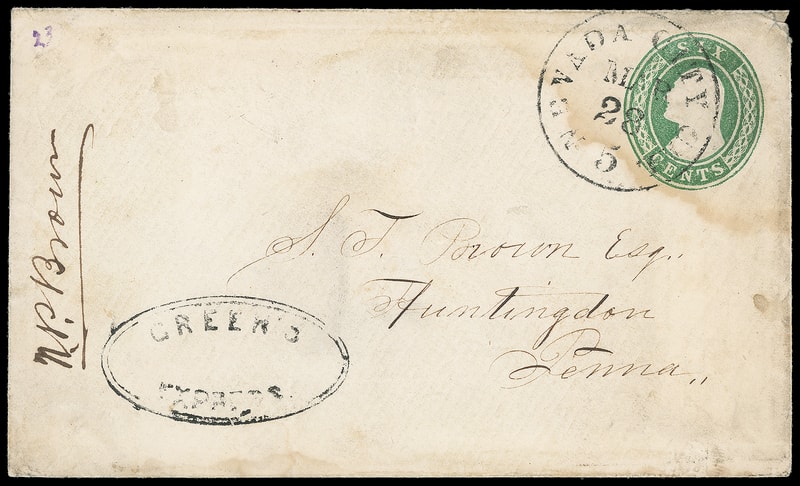 23
NEVADA CITY
28
SIX
CENTS
N. P. Brown
S. T. Brown Esq.
Huntingdon
Penna,,
GREER'S
EXPRESS.